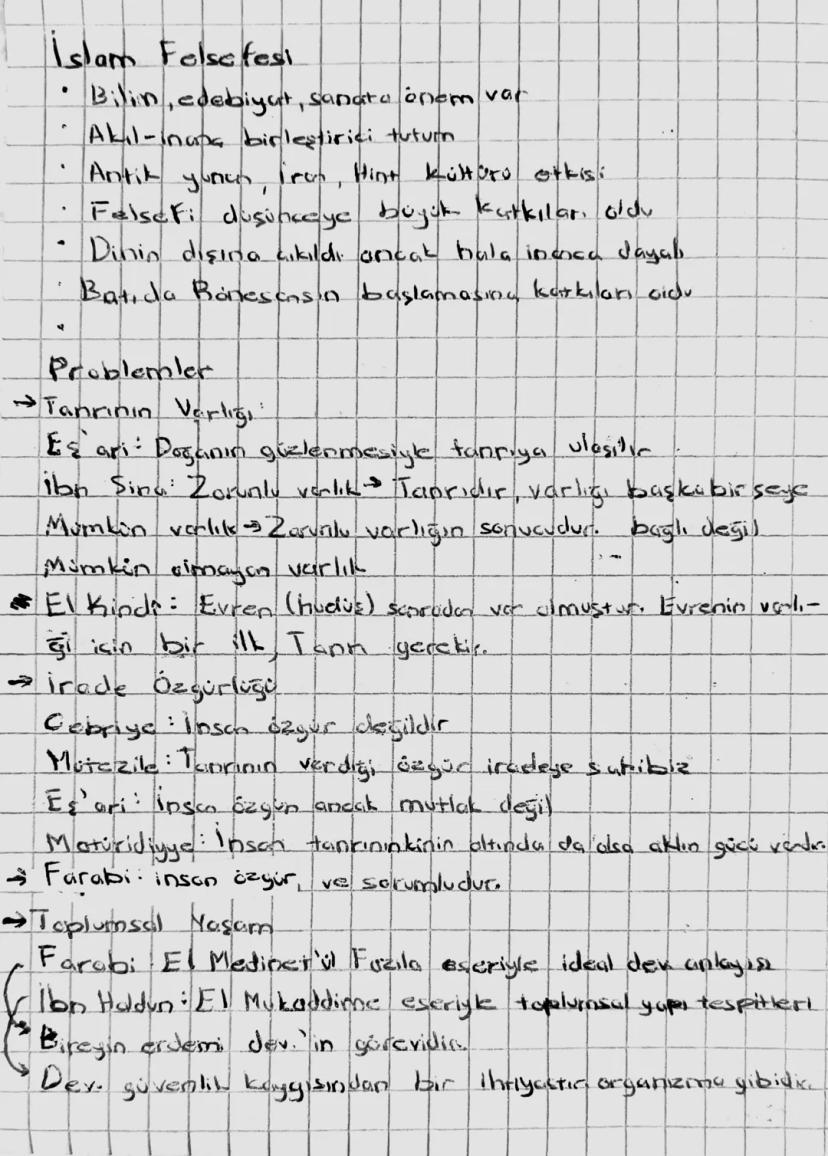 İslam Felsefesi
• Bilim, edebiyat, sanata önem var
• Akıl-inanç birleştirici tutum
• Antik yunan, İran, Hint kültürü etkisi
• Felsefi düşünceye büyük katkıları oldu
• Dinin dışına çıkıldı ancak hala inanca dayalı
• Batıda Rönesansın başlamasına katkıları oldu
•
Problemler
→ Tanrının Varlığı:
Eş'ari: Doğanın gözlenmesiyle tanrıya ulaşılır.
İbn Sina: Zorunlu varlık → Tanrıdır, varlığı başka bir şeye
Mümkün varlık → Zorunlu varlığın sonucudur. bağlı değil
Mümkün olmayan varlık
El Kindi: Evren (hudüs) sonradan var olmuştur. Evrenin varlı-
ğı için bir ilk, Tanrı gerekir.
→ İrade Özgürlüğü
Cebriye: İnsan özgür değildir
Mutezile: Tanrının verdiği özgür iradeye sahibiz
Eş'ari: İnsan özgün ancak mutlak değil
Matüridiyye: İnsan tanrınınkinin altında da olsa aklın gücü vardır.
→ Farabi: insan özgür, ve sorumludur.
→ Toplumsal Yaşam
Farabi: El Medinet'ül Fazıla eseriyle ideal dev. anlayışı
İbn Haldun: El Mukaddime eseriyle toplumsal yapı tespitleri
Bireyin erdemi dev.'in görevidir.
Dev. güvenlik kaygısından bir ihtiyaçtır organizma gibidir.